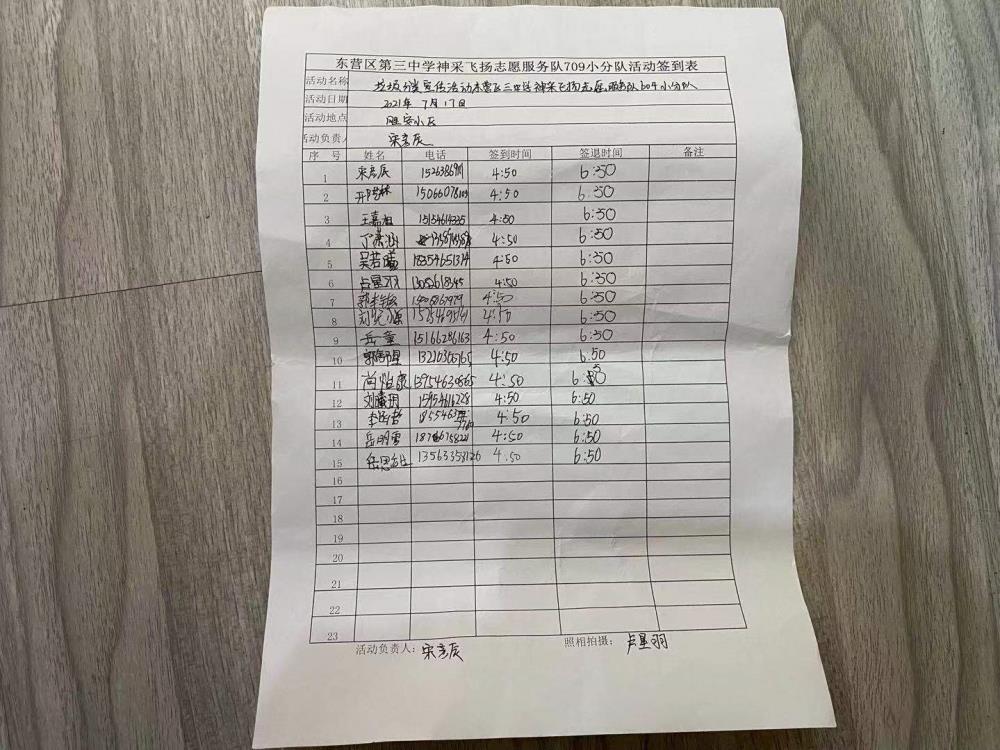 东营区第三中学神采飞扬志愿服务队709小分队活动签到表
活动名称 垃圾分类宣传活动东营区三中学神采飞扬志愿服务队604小分队
活动日期 2021年7月17日
活动地点 胜安小区
活动负责人 宋彦辰
序号 姓名 电话 签到时间 签退时间 备注
1 宋彦辰 4:50 6:50
2 4:50 6:50
3 王嘉 4:50 6:50
4 4:50 6:50
5 吴若 18354651314 4:50 6:50
6 卢星羽 13052618345 4:50 6:50
7 4:50 6:50
8 4:50 6:50
9 岳童 15166286163 4:50 6:50
10 4:50 6:50
11 尚怡康 13954630865 4:50 6:50
12 15954616228 4:50 6:50
13 4:50 6:50
14 岳明雪 4:50 6:50
15 岳恩 13563358126 4:50 6:50
16
17
18
19
20
21
22
23
活动负责人：宋彦辰 照相拍摄：卢星羽